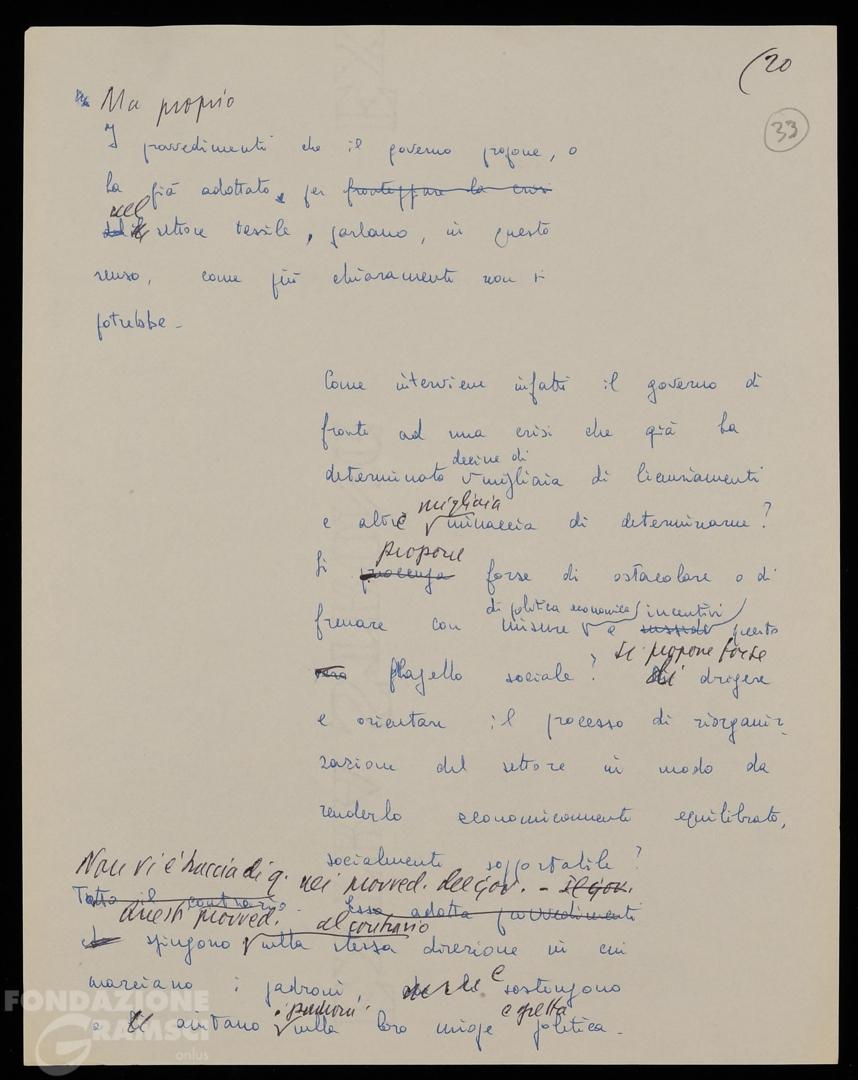 (20
33
Ma proprio
I provvedimenti che il governo propone, o
ha già adottato, per fronteggiare la crisi
nel
settore tessile, parlano, in questo
senso, come più chiaramente non si
potrebbe.
Come interviene infatti il governo di
fronte ad una crisi che già ha
decine di
determinato migliaia di licenziamenti
migliaia
e altre minaccia di determinarne?
propone
Si forse di ostacolare o di
di politica economica incentivi
frenare con misure e sussidi questo
se propone forse
flagello sociale? di dirigere
e orientare il processo di riorganiz-
zazione del settore in modo da
renderlo economicamente equilibrato,
socialmente sopportabile?
Non vi è traccia di q. nei provved. del gov. - Il gov.
Tutto il contrario. Esso adotta provvedimenti
Questi provved. al contrario
spingono nella stessa direzione in cui
marciano i padroni, e sostengono
i padroni e gretta
e aiutano nella loro miope politica.
FONDAZIONE
GRAMSCI
onlus